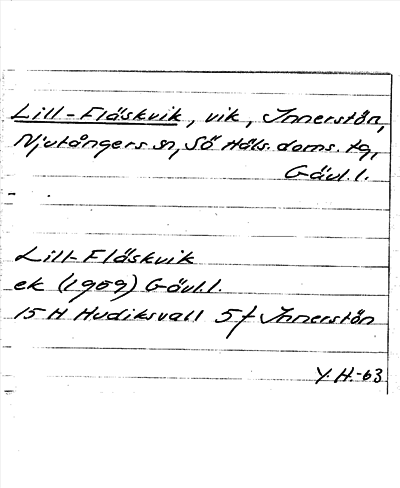 Lill-Fläskvik, vik, Innerstön,
Njutångers sn, Sö Häls. doms. tg,
Gävl.l.
Lill-Fläskvik
ek (1909) Gävl.l.
15 H Hudiksvall 5f Innerstön
Y.H.-63